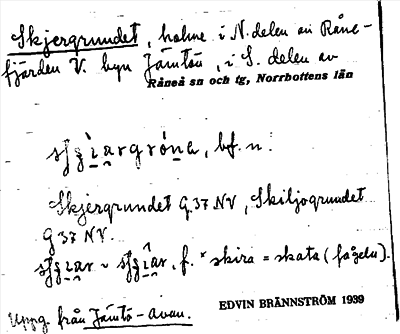 Skjergrundet, holme i N. delen av Råne-
fjärden V. byn Jämtön, i S. delen av
Råneå sn och tg, Norrbottens län
bf. n.
Skjergrundet G.37 NV, Skiljogrundet
G 37 NV.
f. * skira = skata (fågeln).
Uppg. från Jämtö-Avan.
EDVIN BRÄNNSTRÖM 1939